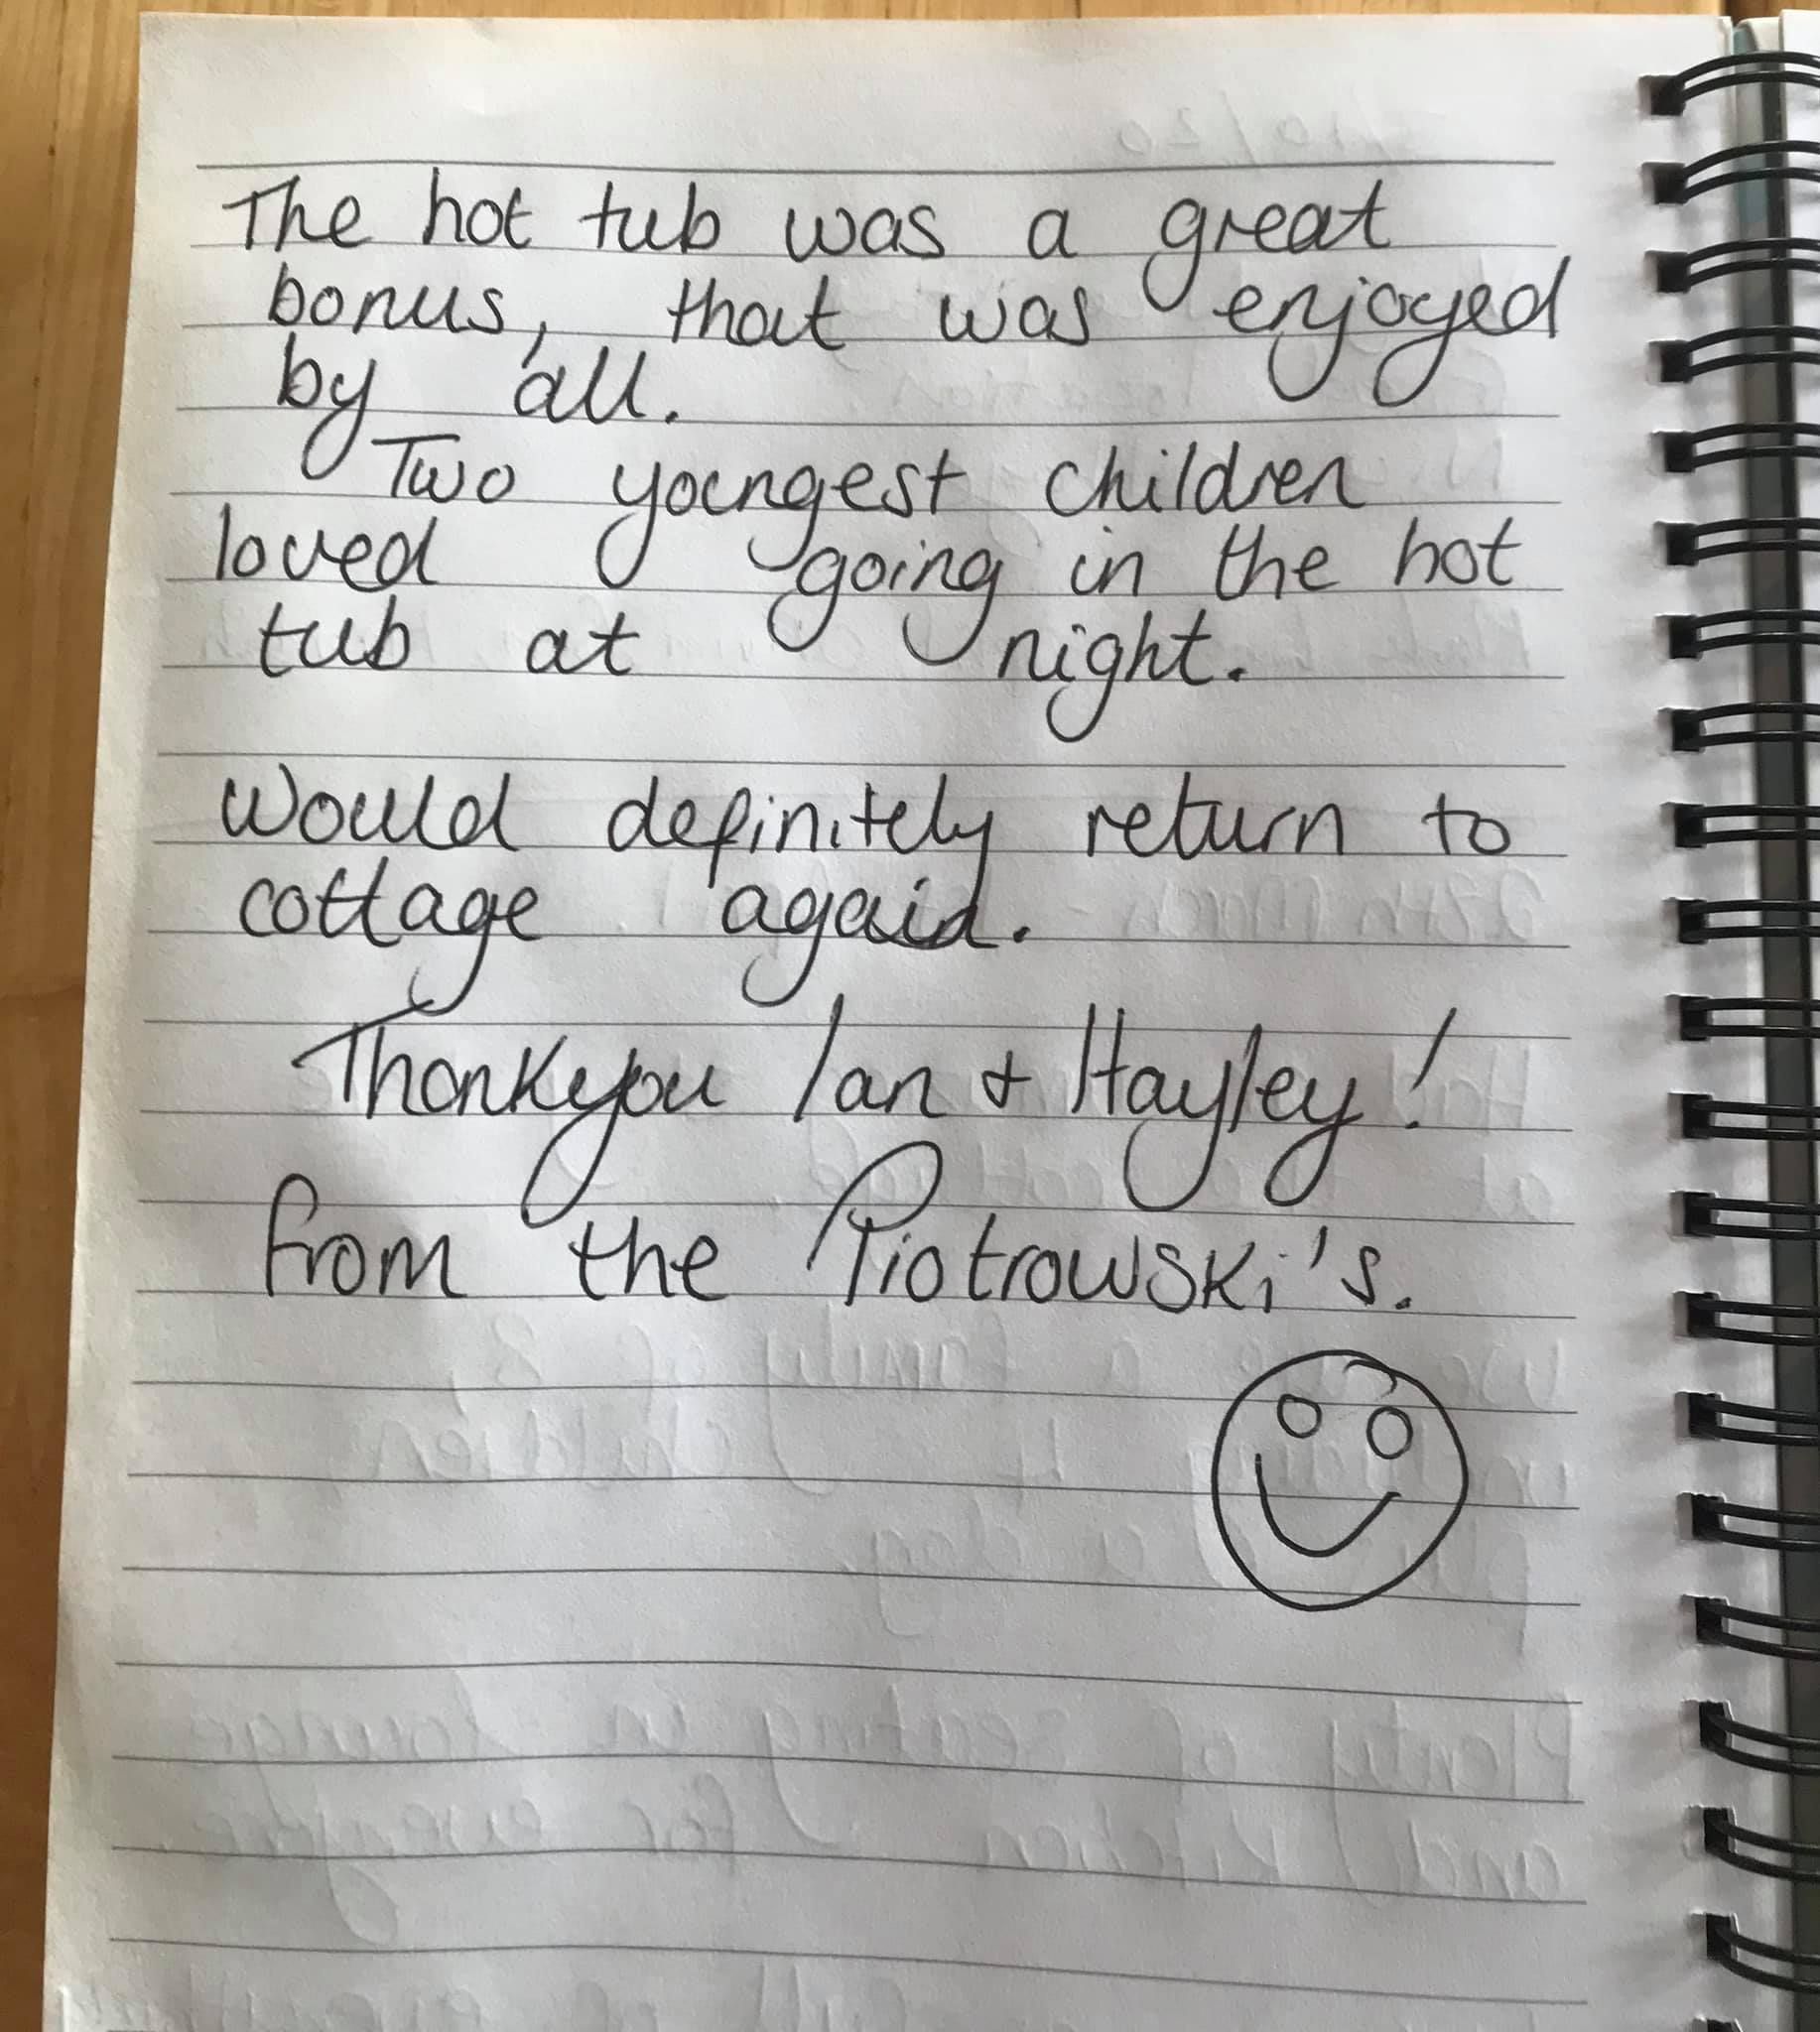 The hot tub was a great
bonus, that was enjoyed
by all.
Two youngest children
loved going in the hot
tub at night.
Would definitely return to
cottage again.
Thankyou Ian + Hayley!
from the Piotrowski's.